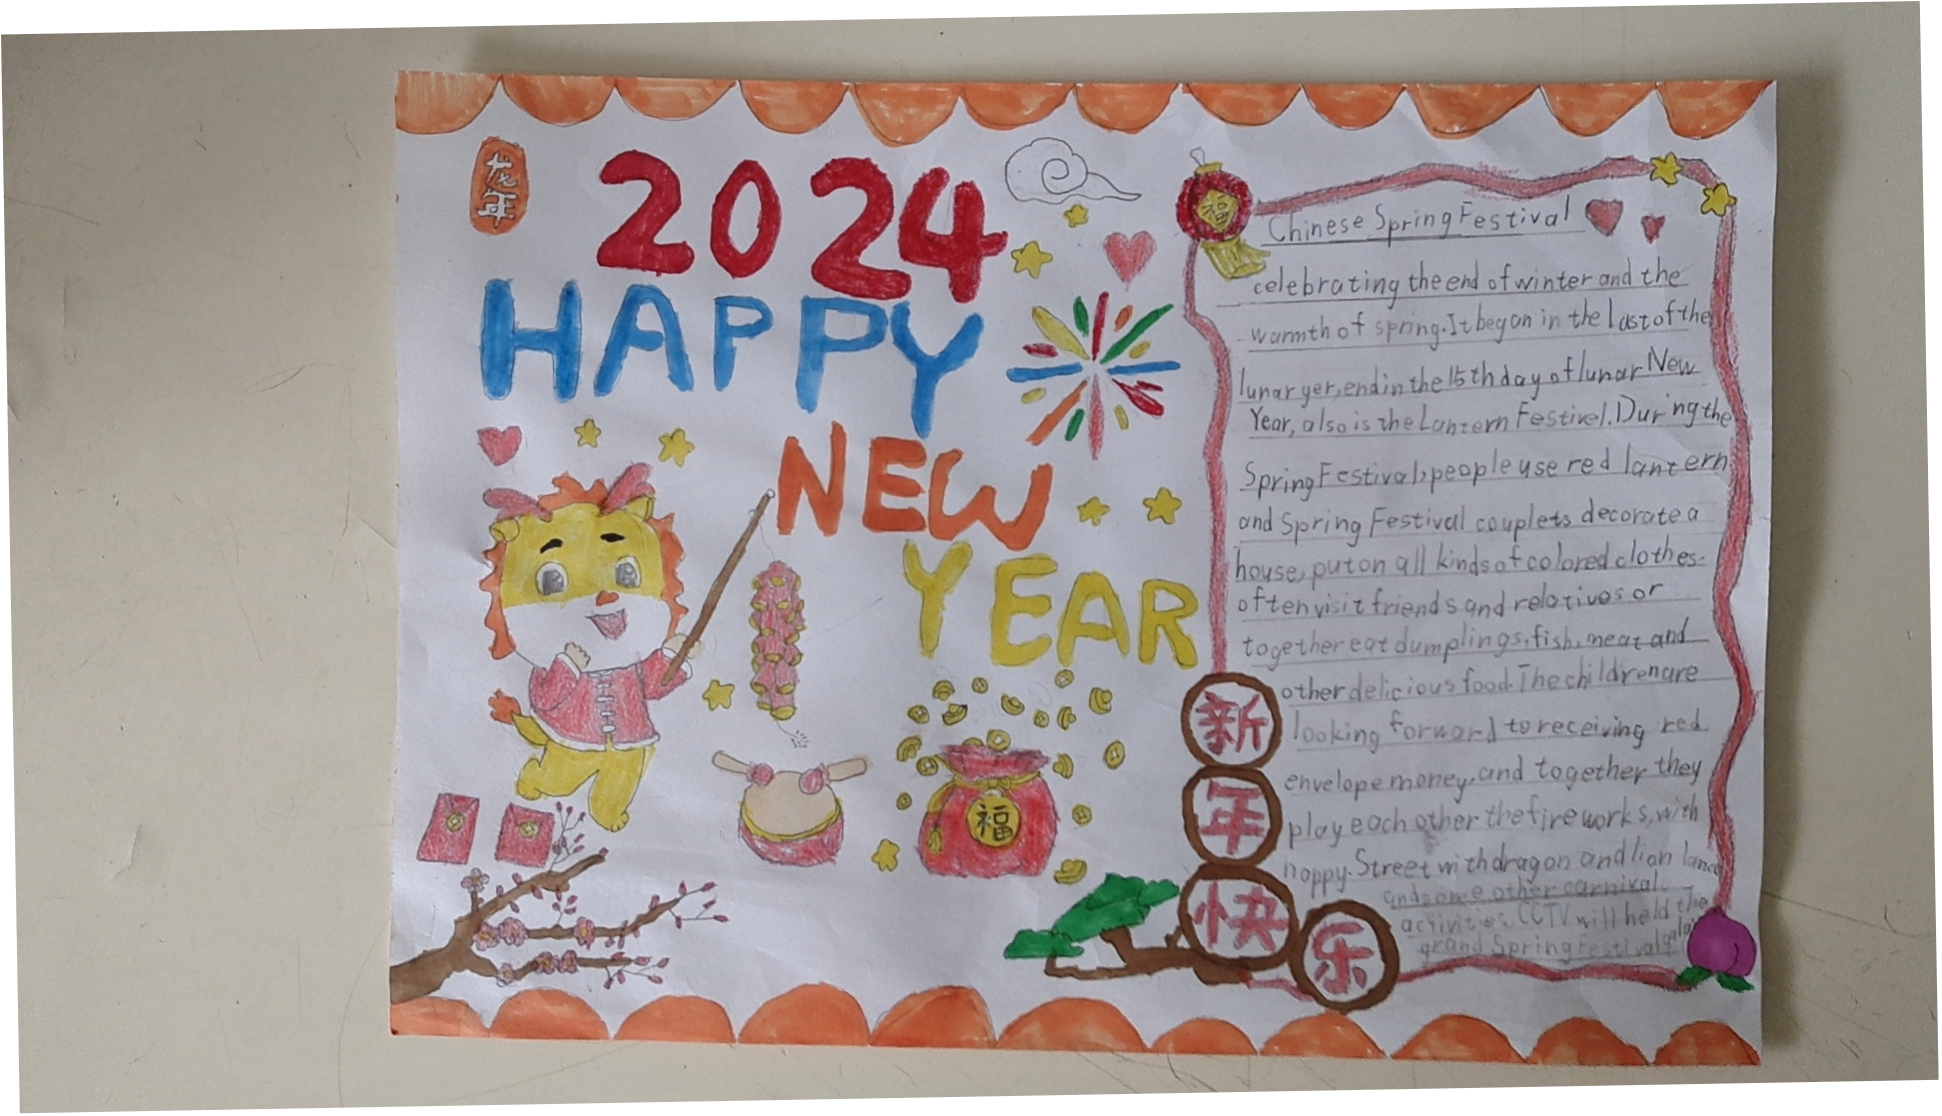 龙年
2024
HAPPY
NEW
YEAR
福
福
Chinese Spring Festival
celebrating the end of winter and the
warmth of spring. It began in the last of the
lunar yer, end in the 15th day of lunar New
Year, also is the Lantern Festivel. During the
Spring Festival, people use red lantern
and Spring Festival couplets decorate a
house, put on all kinds of colored clothes.
often visit friends and relatives or
together eat dumplings, fish, meat and
other delicious food. The children are
looking forward to receiving red
envelope money, and together they
play each other the fireworks, with
happy. Street with dragon and lion lance
and some other carnival
activities. CCTV will held the
grand Spring Festival gala
新
年
快
乐